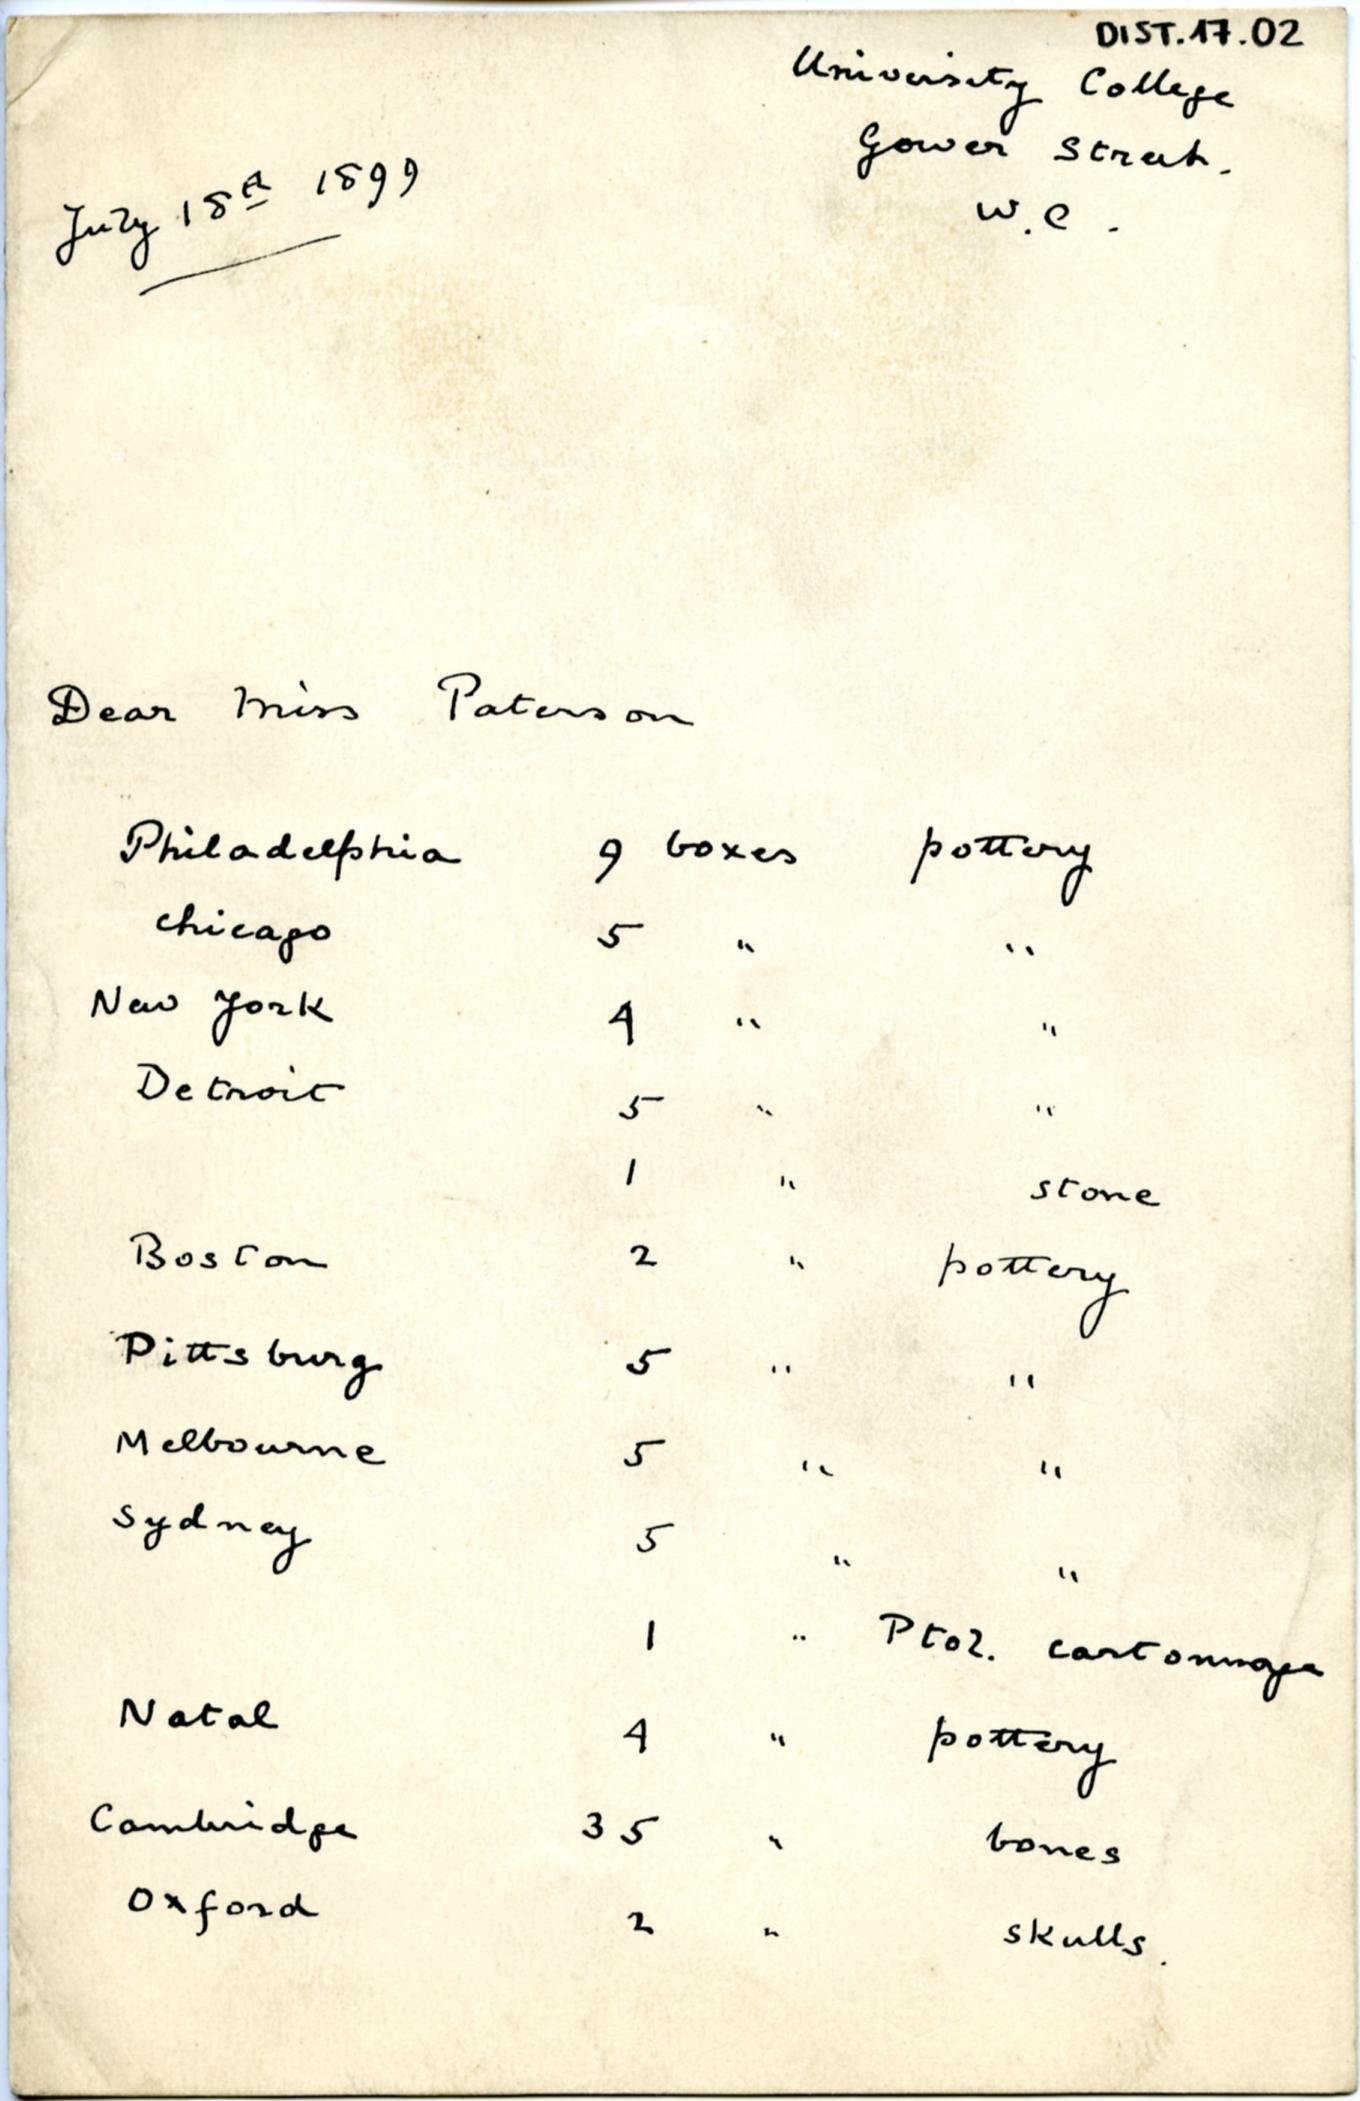 DIST.17.02
University College
Gower Street.
W.C.
July 18th 1899
Dear Miss Paterson
Philadelphia 9 boxes pottery
Chicago 5 " "
New York 4 " "
Detroit 5 " "
1 " stone
Boston 2 " pottery
Pittsburg 5 " "
Melbourne 5 " "
Sydney 5 " "
1 " Ptol. cartonnage
Natal 4 " pottery
Cambridge 35 " bones
Oxford 2 " skulls.